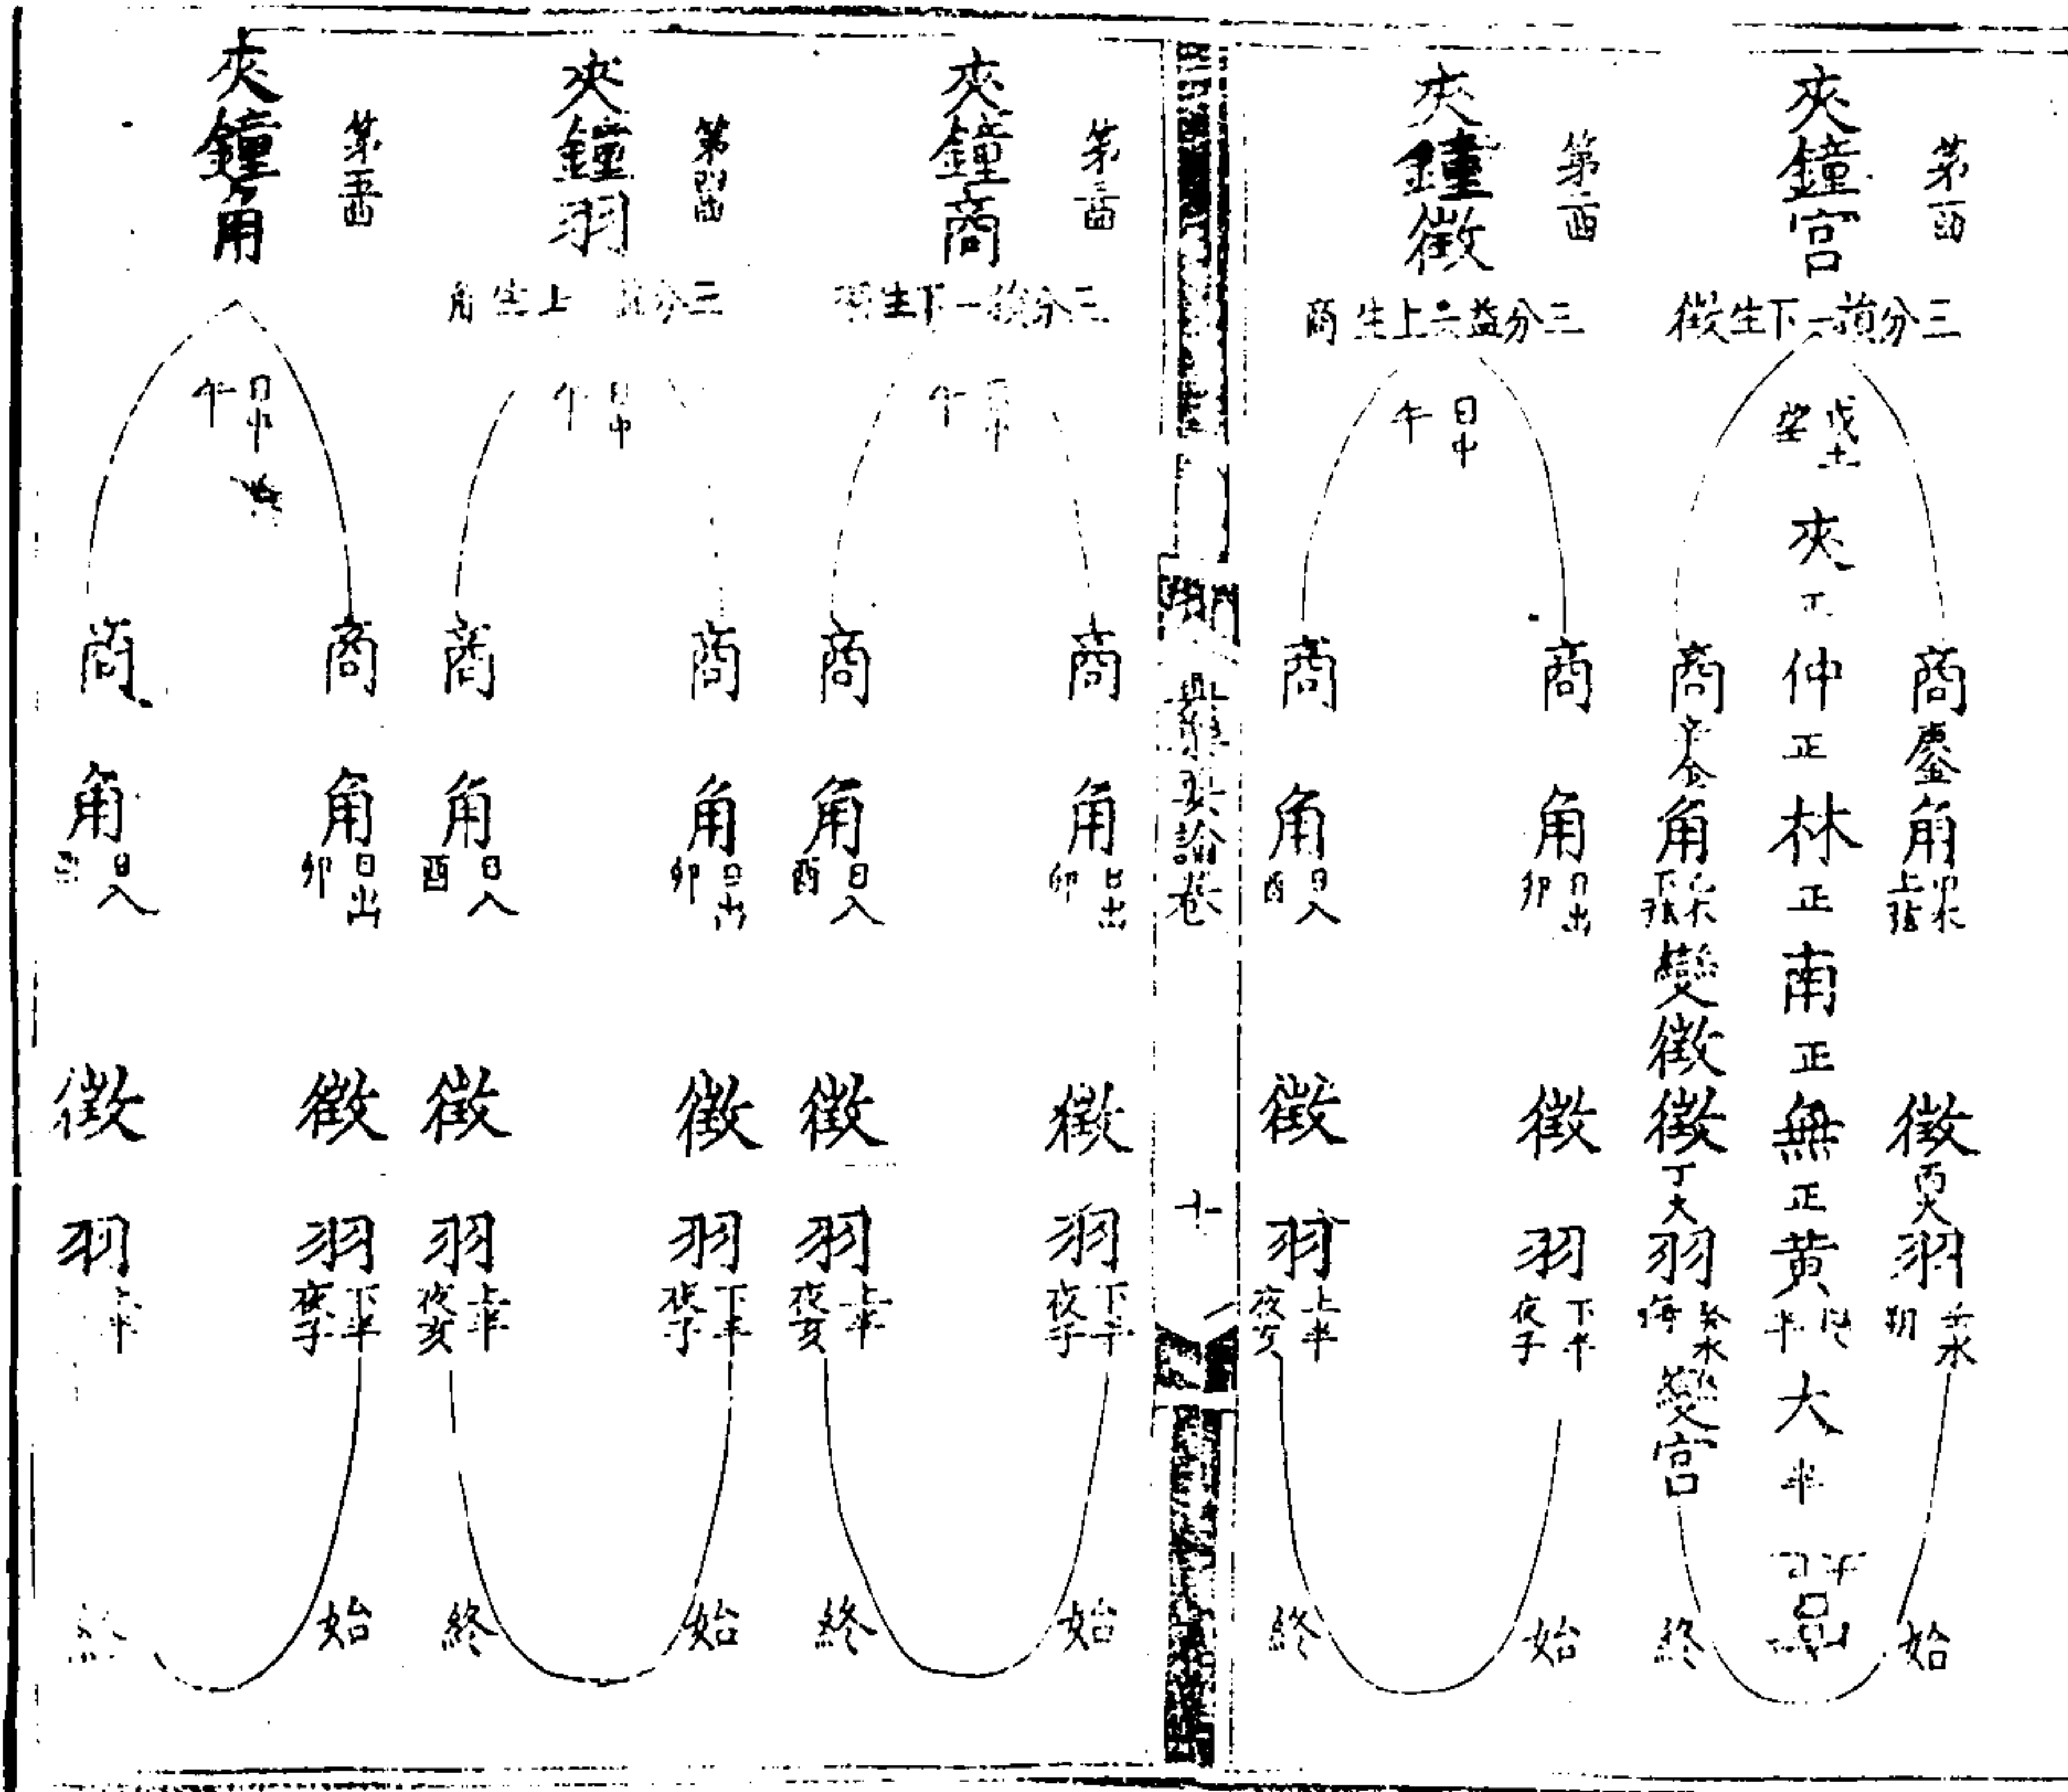 第一曲
夾鐘宮
三分損一下生徵
戊土
望
商 庚金 角 甲木 上弦 徵 丙火 羽 壬水 朔 始
夾 正 仲 正 林 正 南 正 無 正 黃 半 大 半
商 辛金 角 乙木 下弦 變徵 徵 丁火 羽 癸水 晦 變宮 終
第二曲
夾鐘徵
三分益一上生商
日中
午
商 角 日出 卯 徵 羽 下半 夜子 始
商 角 日入 酉 徵 羽 上半 夜亥 終
卷
十
第三曲
夾鐘商
三分損一下生羽
日中
午
商 角 日出 卯 徵 羽 下半 夜子 始
商 角 日入 酉 徵 羽 上半 夜亥 終
第四曲
夾鐘羽
三分益一上生角
日中
午
商 角 日出 卯 徵 羽 下半 夜子 始
商 角 日入 酉 徵 羽 上半 夜亥 終
第五曲
夾鐘角
日中
午
商 角 日出 卯 徵 羽 下半 夜子 始
商 角 日入 酉 徵 羽 上半 終